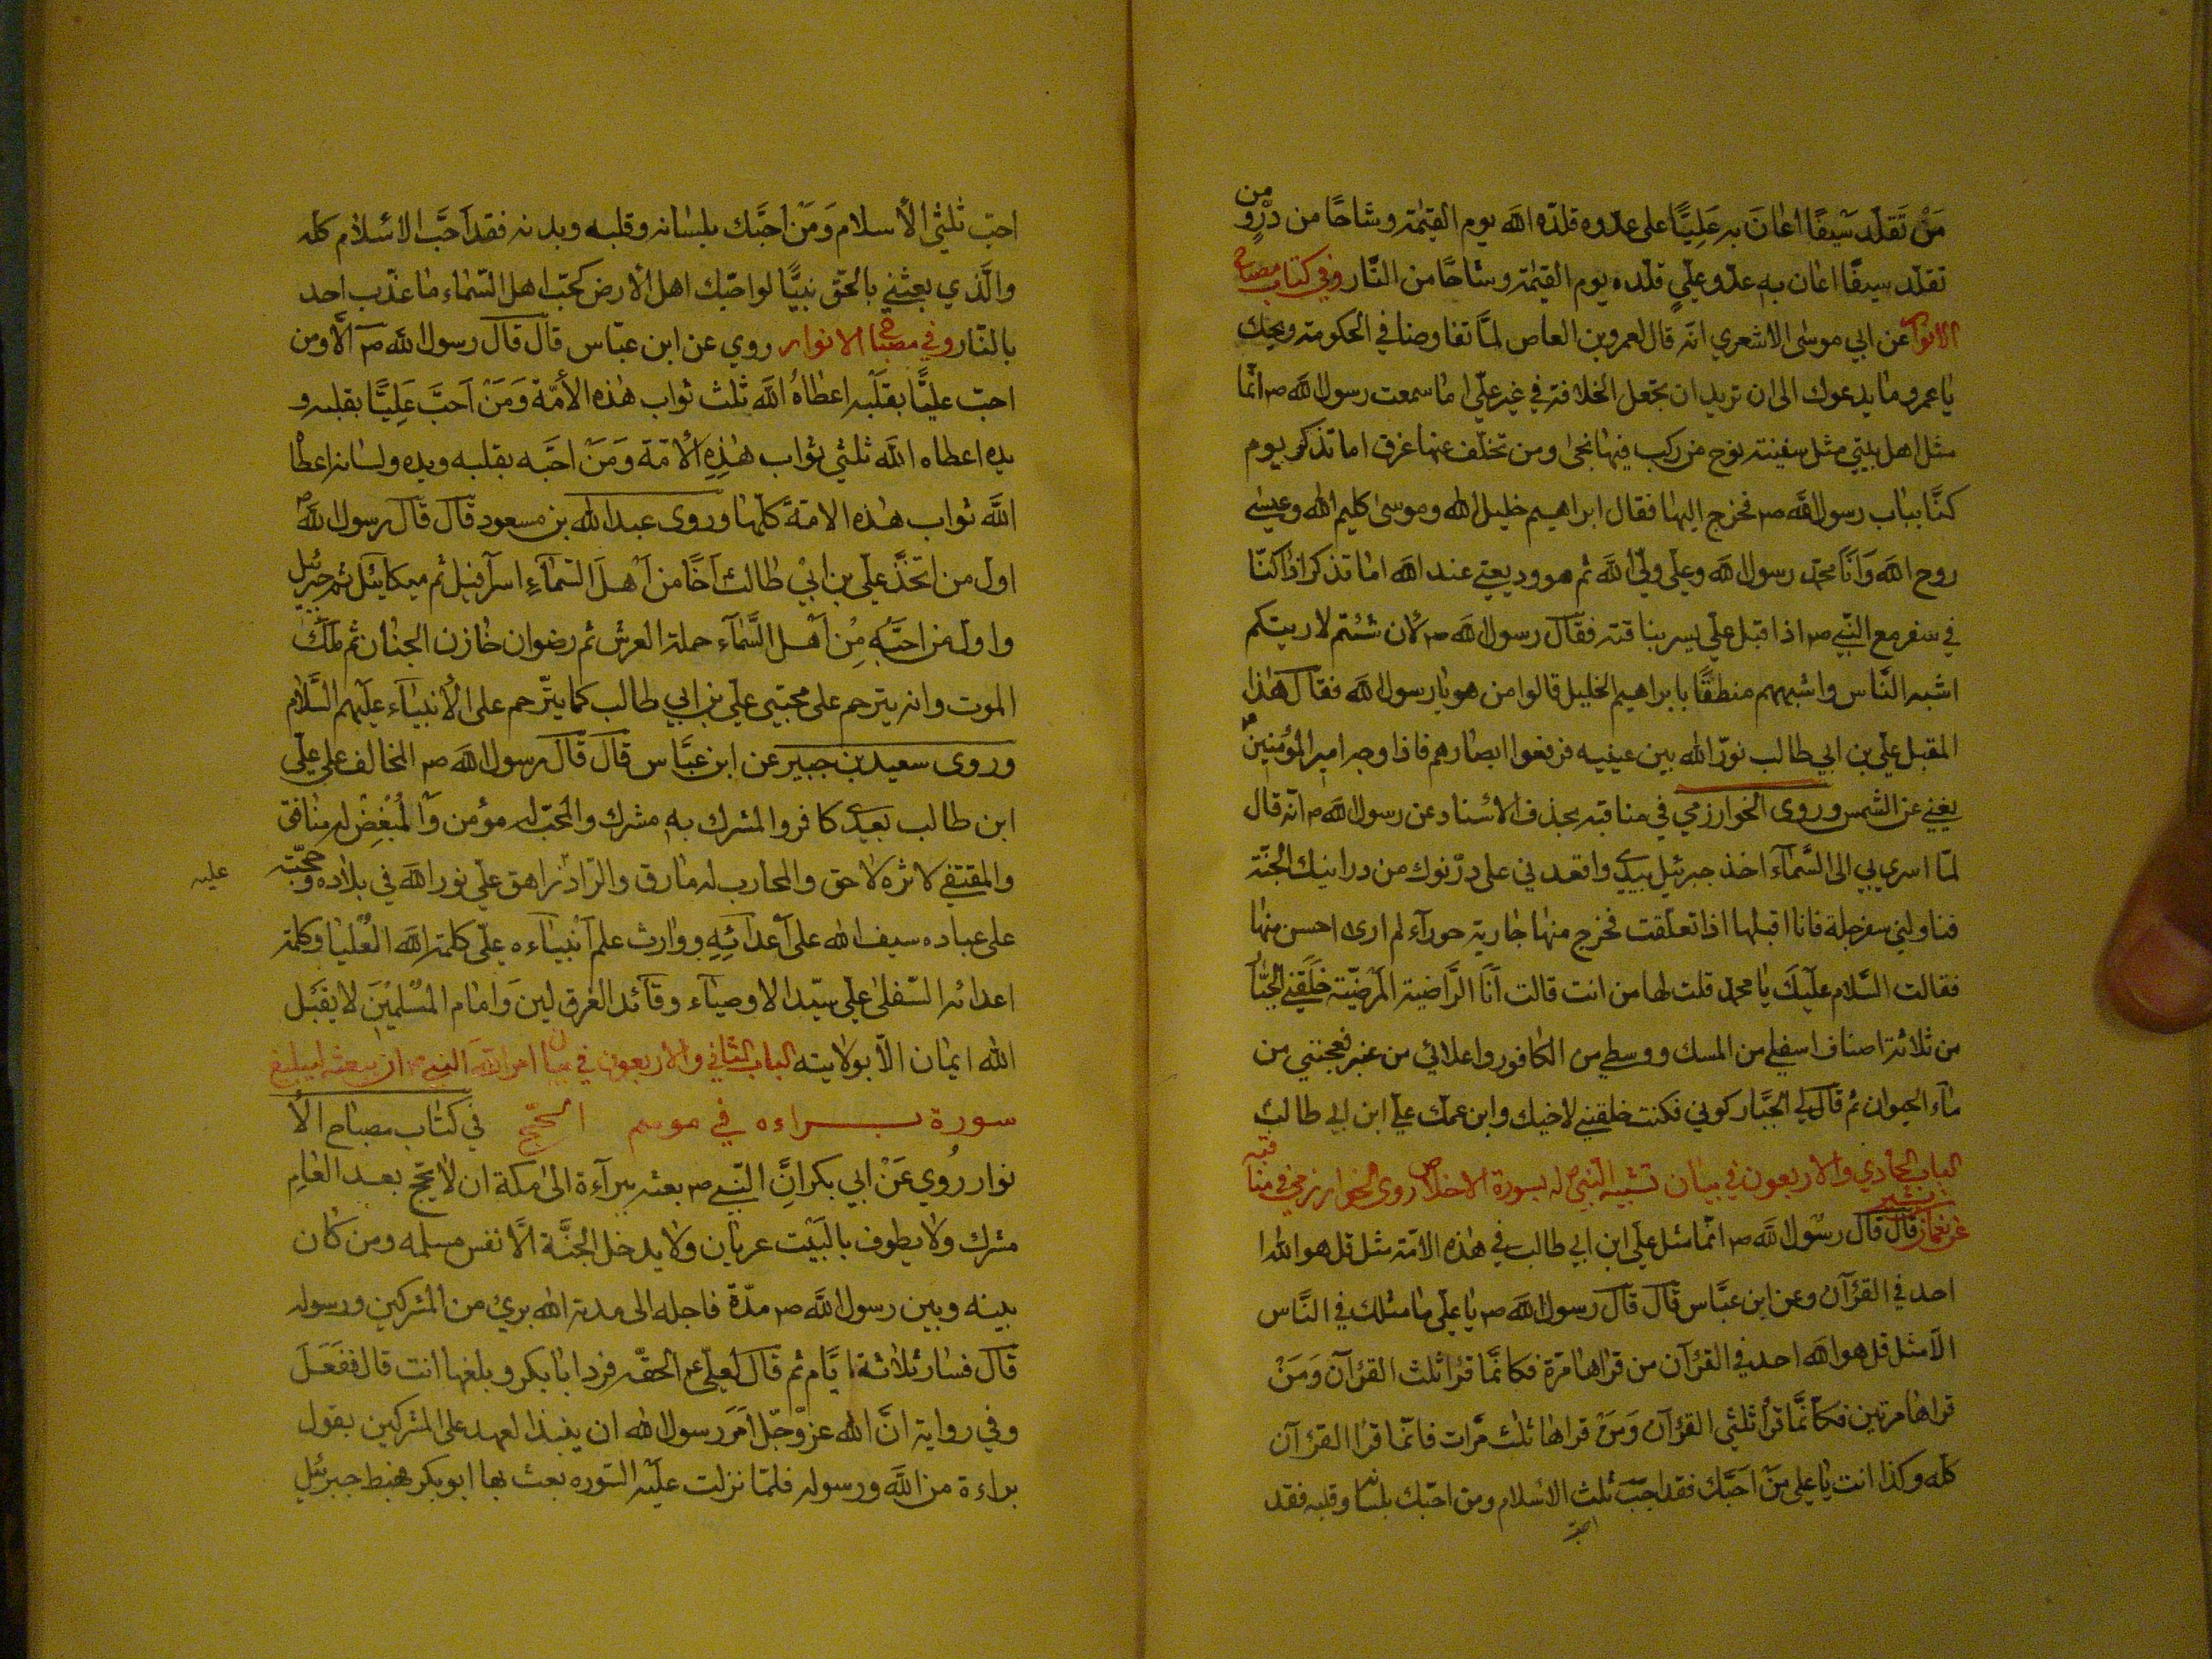 مَنْ تَقلّد سَيفًا اعَانَ به عَلِيًّا على عدوه قلدّه الله يوم القيٰمة وشاحًا من دُرٍّ ومن
تقلّد سيفًا اعان به عدو عليٍ قلّده يوم القيٰمة وشاحًا من النّار وفي كتاب مصباح
الانوار عن ابي موسٰى الاشعري انّه قال لعمرو بن العاص لمّا تفاوضنا في الحكومة ويحك
يا عمرو ما يدعوك الى ان تريد ان تجعل الخلافة في غير عليّ اما سمعت رسول الله ص انّما
مثل اهل بيتي مثل سفينة نوح من ركب فيها نجى ومن تخلّف عنها غرق اما تذكر يوم
كنّا بباب رسول الله ص فخرج الينا فقال ابراهيم خليل الله وموسى كليم الله وعيسى
روح الله وَانَا محمّد رسول الله وعلي وليّ الله ثم هو وديعتي عند الله اما تذكر اذا كنّا
في سفر مع النّبي ص اذا قبل علي يسير بناقته فقال رسول الله ص لان شئتم لاريتكم
اشبه النّاس واشبههم منطقًا بابراهيم الخليل قالوا من هو يا رسول الله فقال هٰذا
المقبل علي بن ابي طالب نوّر الله بين عينيه فرفعوا ابصارهم فاذا وجه امير المؤمنين ع
يغني عن الشمس وروى الخوارزمي في مناقبه بحذف الاسناد عن رسول الله ص انّه قال
لمّا اسري بي الى السّماء اخذ جبرئيل بيدي واقعدني على درنوك من درانيك الجنّة
فناولني سفرجلة فانا اقبلها اذا تعلقت فخرج منها جارية حوراء لم ارى احسن منها
فقالت السّلام عليك يا محمد قلت لها من انت قالت اَنَا الرَّاضية المرضيّة خَلَقني الجبّار
من ثلاثة اصناف اسفلي من المسك ووسطي من الكافور واعلائي من عنبر فعجنتي من
ماء الحيوان ثم قال لي الجبّار كوني فكنت خلقني لاخيك وابن عمك علي ابن ابي طالب
الباب الحادي والاربعون في بيان تشبيه النّبي ص له بسورة الاخلاص روى الخوارزمي في مناقبه
عن نعمان بن بشير قال قال رسول الله ص انّما مثل علي ابن ابي طالب في هٰذه الامّة مثل قل هو الله
احد في القرآن وعن ابن عبّاس قال قال رسول الله ص يا علي ما مثلك في النّاس
الّا مثل قل هو الله احد في القرآن من قراها مرّة فكانّما قرا ثلث القرآن وَمَنْ
قراها مرتين فكانّما قرأ ثلثي القرآن وَمَنْ قراها ثلث مرّات فانّما قرا القرآن
كلّه وكذا انت يا علي مَنْ احَبَّك فقد احبّ ثلث الاسلام ومن احبّك بلسانه وقلبه فقد
احبّ
احبّ ثلثي الأسلام وَمَنْ احَبَّك بلسانه وقلبه وبدنه فقد احَبَّ الاسلام كلّه
والّذي بعثني بالحق نبيًّا لو احبّك اهل الأرض كحبّ اهل السّماء ما عذّب احد
بالنّار وفي مصباح الانوار روي عن ابن عبّاس قال قال رسول الله ص الّا ومن
احبّ عليًّا بقلبه اعطاهُ الله ثلث ثواب هٰذه الأمّة وَمَنْ اَحبَّ عَلِيًّا بقلبه و
يده اعطاه الله ثلثي ثواب هٰذِه الامّة وَمَنْ احَبَّه بقلبه ويده ولسانه اعطاه
الله ثواب هذه الامّة كلّها وروى عبد الله بن مسعود قال قال رسول الله ص
اول من اتخذ علي بن ابي طالب اَخًا من اهل السّماء اسرافيل ثم ميكائيل ثم جبرئيل
واول من احبَّه مِن اَهل السَّمآء حملة العرش ثم رضوان خازن الجنان ثم ملك
الموت وانه يترحم على محبّي علي بن ابي طالب كما يترّحم على الأنبياء عليهم السَّلام
وروى سعيد بن جبير عن ابن عَبَّاس قال قال رسول الله ص المخالف على علي
ابن طالب بعدي كافر والمشرك به مشرك والمحبّ له مؤمن وَالمُبْغِضُ له منافق
والمقتفي لاثره لاحق والمحارب له مارق والرّادّ زاهق علي نور الله في بلاده وحجّته
عليه
على عباده سيف الله على اَعْدائِهِ ووارث علم انبياءه علي كلمة الله العُليا وكلمة
اعدائه السّفلى علي سيّد الاوصياء وقائد الغر لين وَامام المُسْلمِيْن لا يقبل
الله ايمان الّا بولايته الباب الثّاني والاربعون في بيان امر الله النبي ص ان يبعثه ليبلغ
سورة براءه في موسم الحجّ في كتاب مصباح الأ
نوار رُوي عَنْ ابي بكر انَّ النّبي ص بعثه ببرآءة الى مكة ان لا يحجّ بعد العامِ
مشرك ولا يطوف بالبَيْت عريان ولا يدخل الجنَّة الّا نفس مسلمه ومن كان
بينه وبين رسول الله ص مدّة فاجله الى مدته الله بريئ من المشركين ورسوله
قال فسار ثلاثة ايّام ثم قال لعلي ع الحقّه فرد ابا بكر وبلغها انت قال ففَعَل
وفي رواية انَّ الله عزّ وجلّ اَمَر رسول الله ان ينبذ العهد على المشركين بقول
براءة من الله ورسوله فلمّا نزلت عليه السّوره بعث بها ابو بكر فهبط جبرئيل